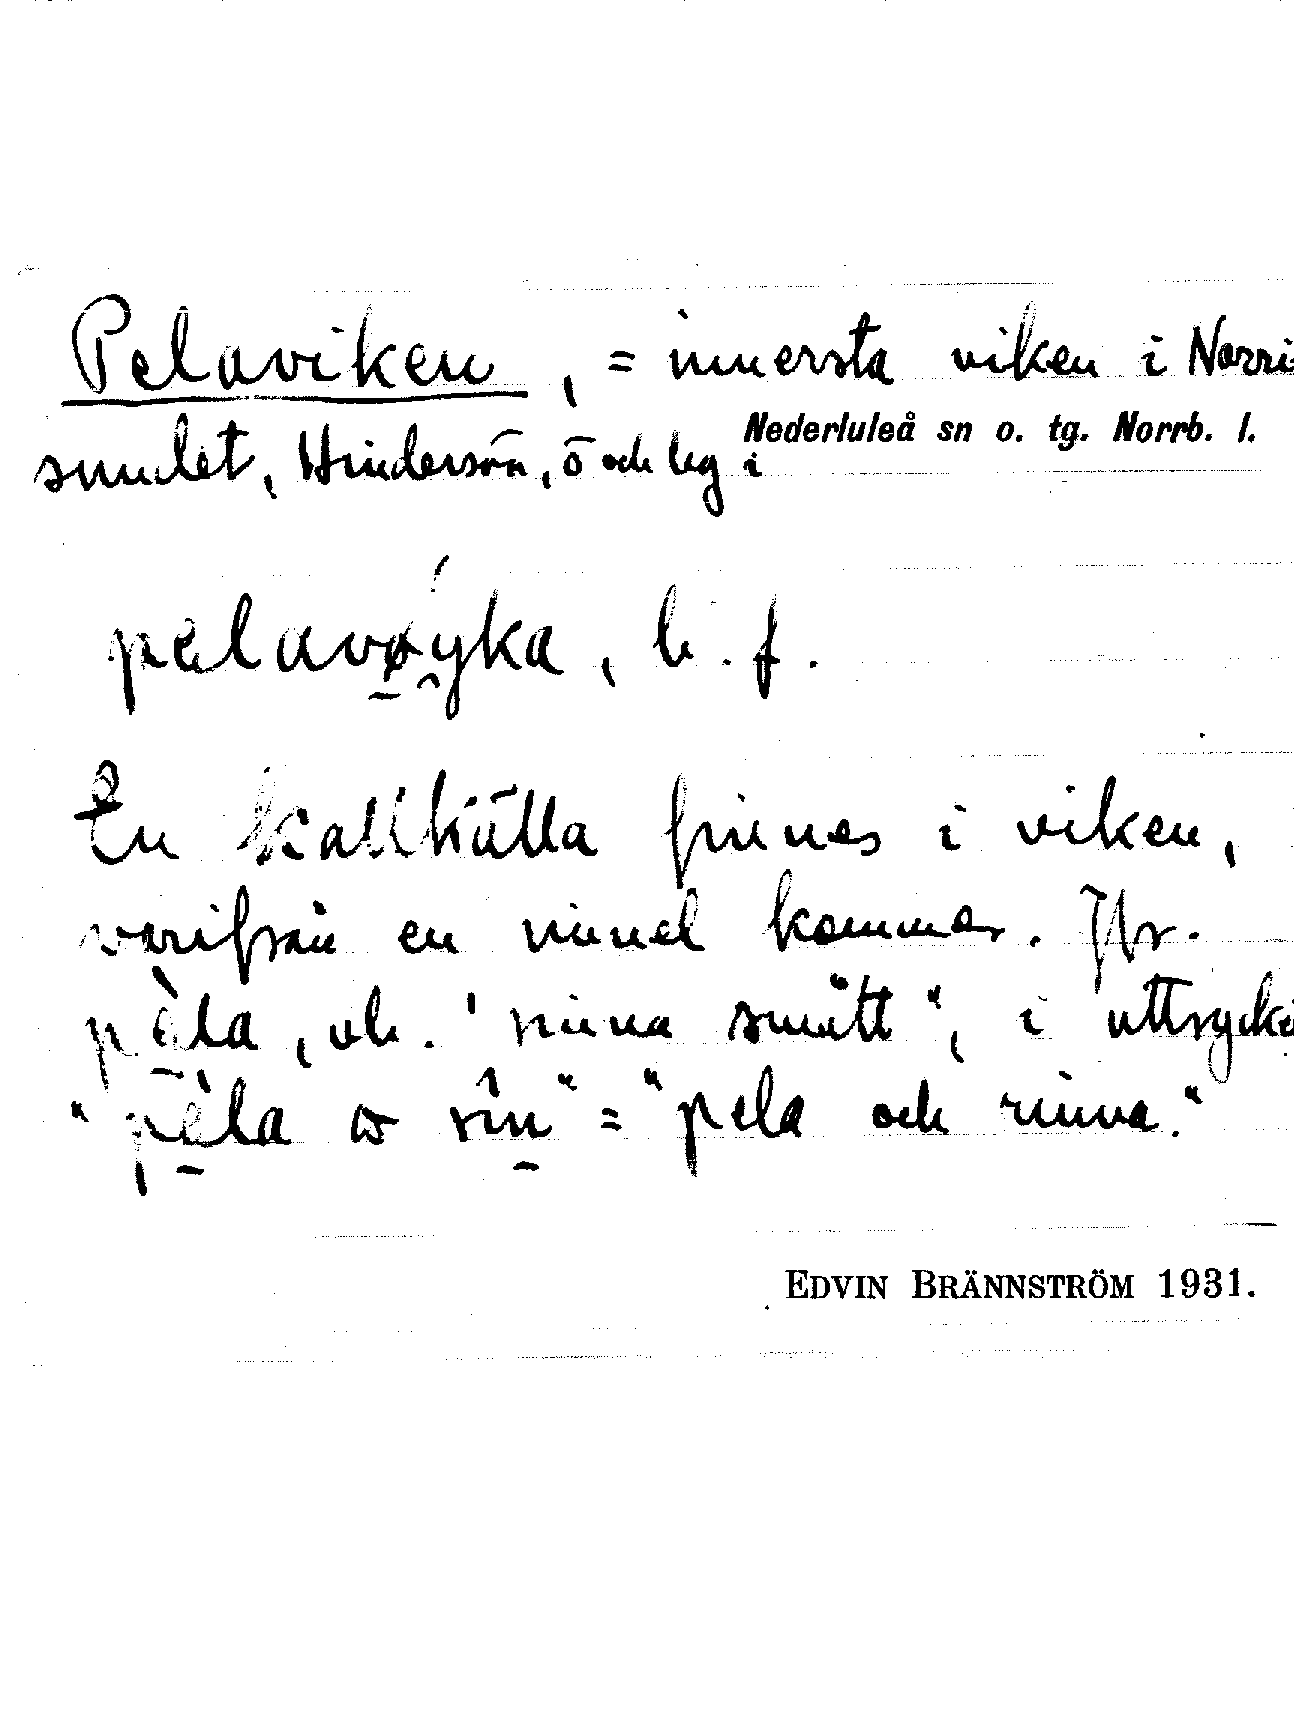 Pelaviken, = innersta viken i Norri-
sundet, Hindersön, ö och by i Nederluleå sn o. tg. Norrb. l.
pelavøyka, b. f.
En kallkälla finnes i viken,
varifrån en rinnel kommer. Jfr.
pèla, vb. 'rinna smått', i uttrycket
"pèla ω rîn" = "pela och rinna."
EDVIN BRÄNNSTRÖM 1931.